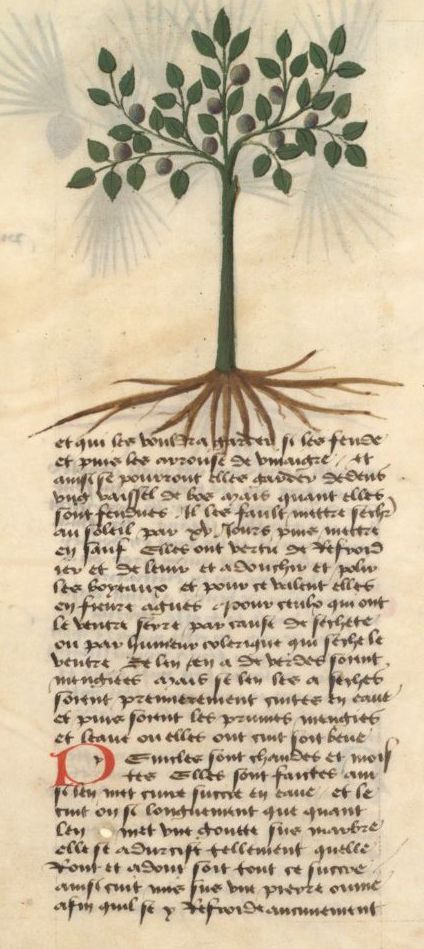 et qui les vouldra garder si les fende
et puis les arrouse de vinaigre / et
ainsi se pourront elles garder dedens
ung vaissel de bos mais quant elles
sont fendues . Il les fault mettre sechr
au soleil par xv Jours puis mettre
en sauf Elles ont vertu de Refroid
ier et de lenir et adouchir et polir
les boyeaulx et pour ce valent elles
en fieure agues / pour ceulx qui ont
le ventre serre par cause de sechete
ou par humeur colerique qui seche le
ventre Se len en a de verdes soient
mengiees mais se len les a seches
soient premierement cuites en eaue
et puis soient les prunes mengies
et leaue ou elles ont cuit soit beue
P Enides sont chaudes et mois
tes Elles sont faictes ain
si len met cuire succre en eaue et le
cuit on si longuement que quant
len met une goutte sus marbre
elle se adurcist tellement quelle
Ront et adont soit tout ce succre
ainsi cuit mis sus une pierre onnie
afin quil se y Refroide aucunement